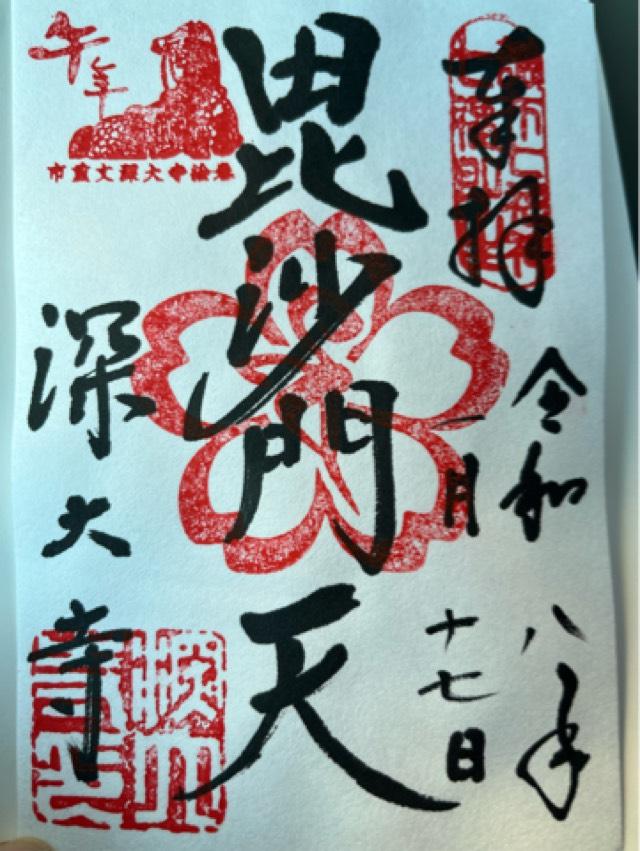 奉拝
令和八年
一月十七日
毘沙門天
午年
市重文深大寺絵巻
深大寺